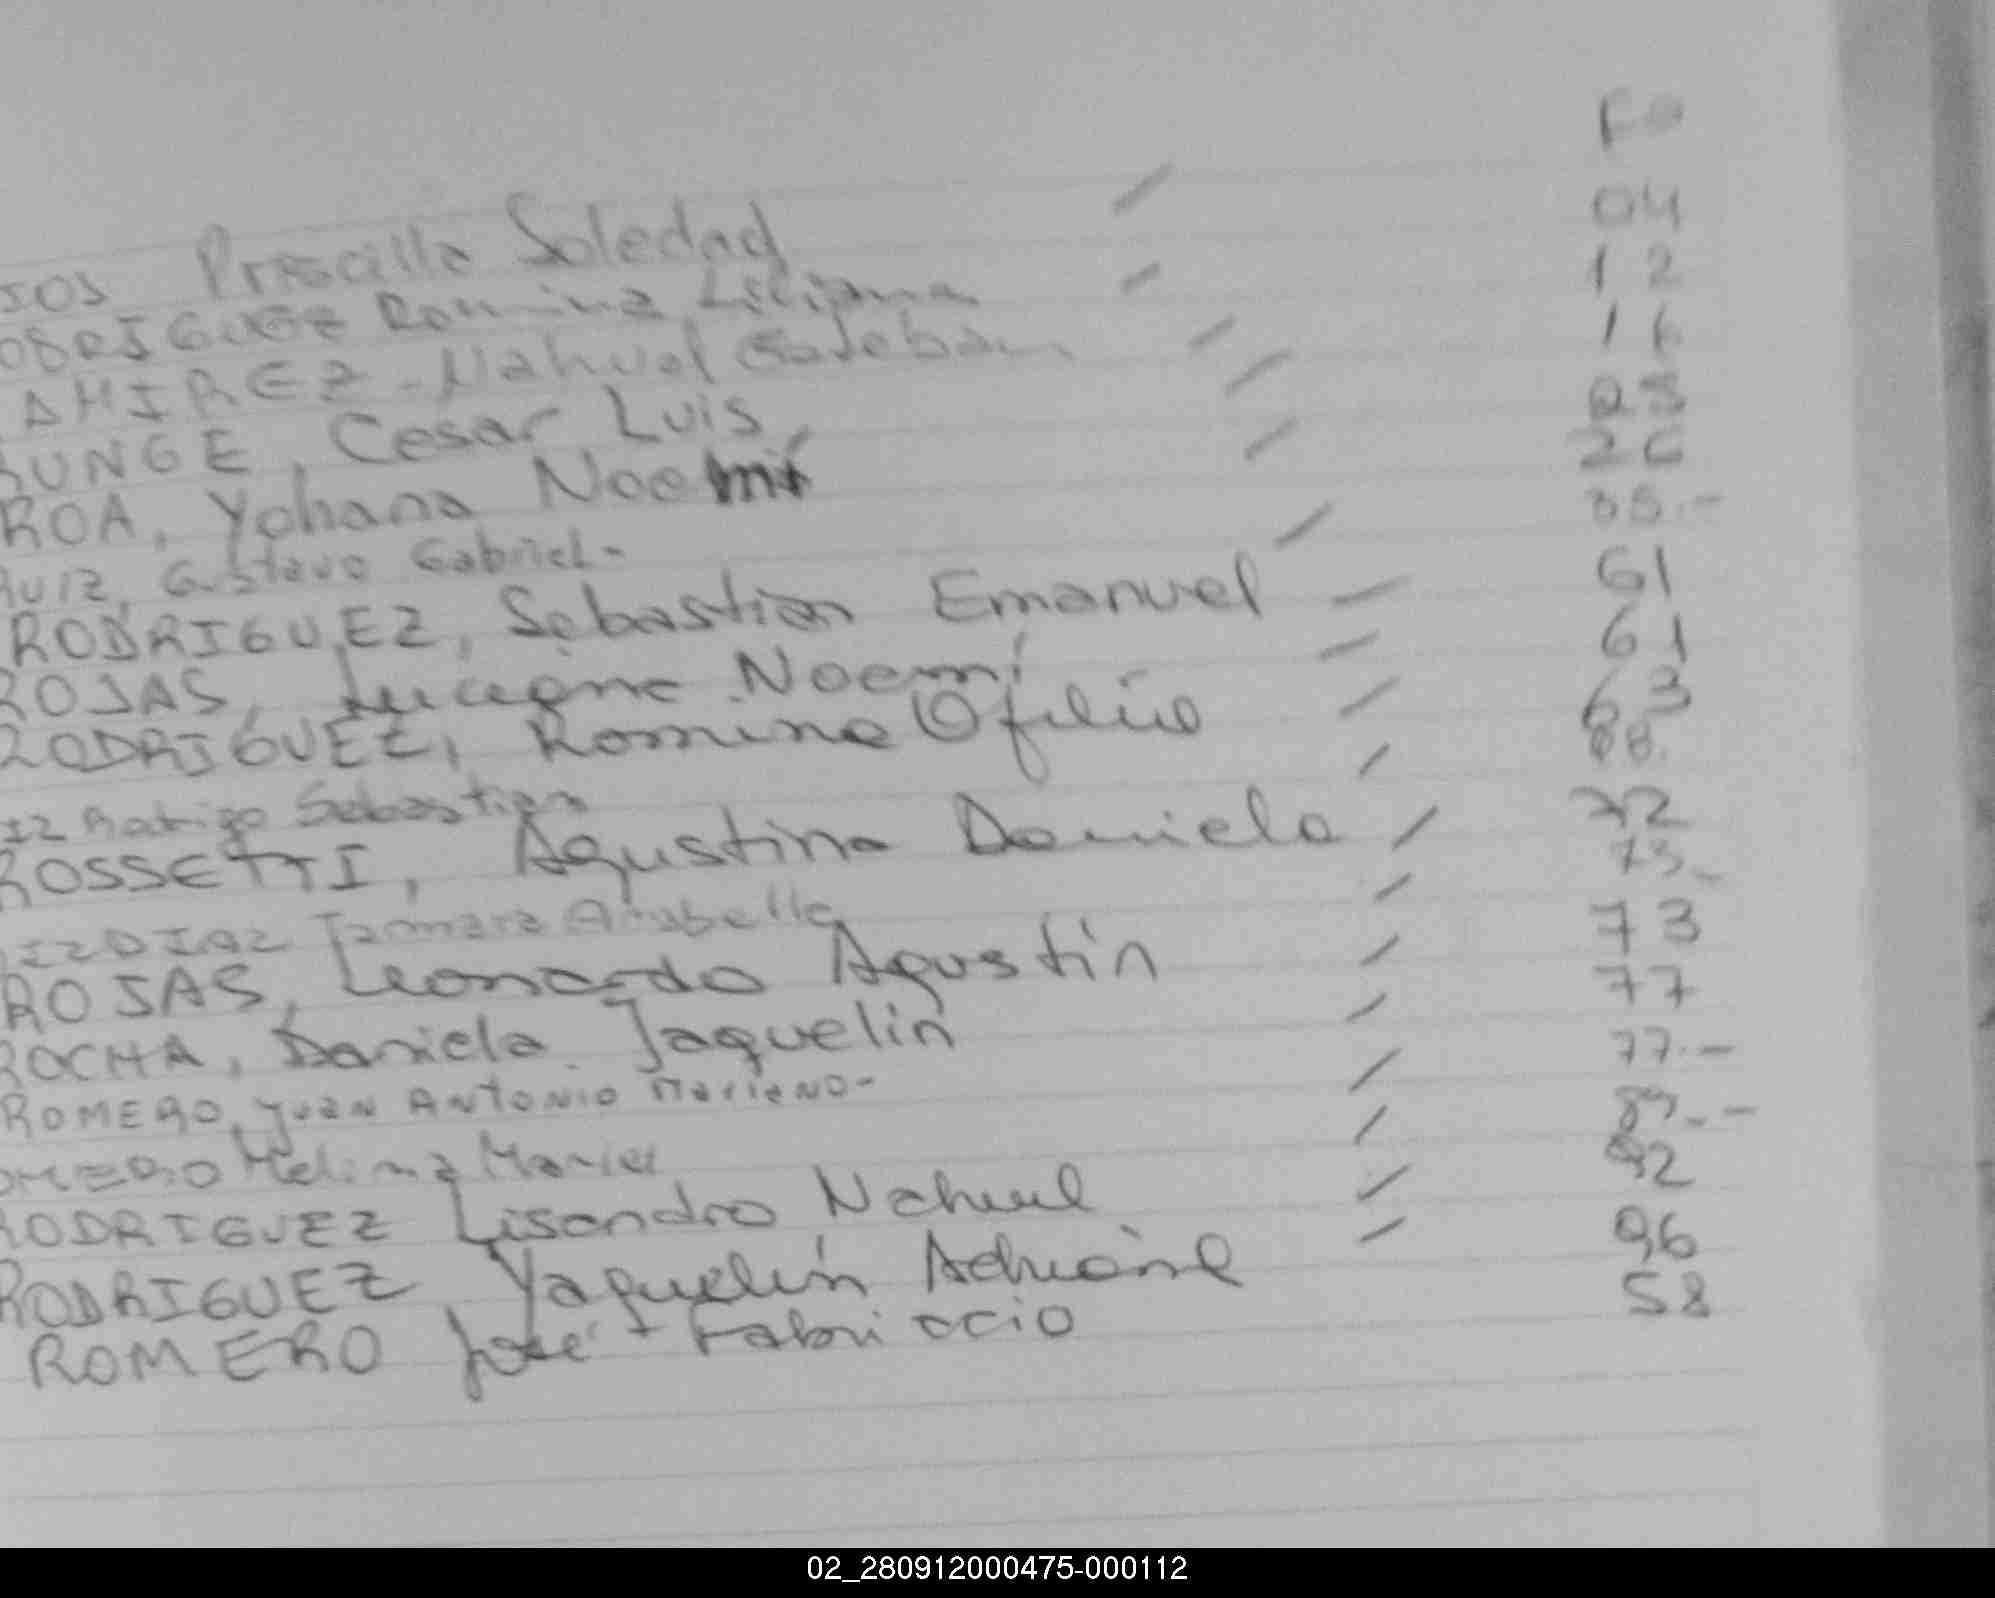 Fº
IOS Priscilla Soledad 04
ODRIGUEZ Romina Liliana 12
AMIREZ - Nahuel Esteban 16
RUNGE, Cesar Luis 23
ROA, Yohana Noemí 26
RUIZ, Gustavo Gabriel -
RODRIGUEZ, Sebastian Emanuel 61
ROJAS, Luciana Noemí 61
RODRIGUEZ, Romina Ofelia 63
IZ Rodrigo Sebastian
ROSSETTI, Agustina Daniela 72
IZ DIAZ Tamara Anabella 73 -
ROJAS, Leonardo Agustín 73
ROCHA, Daniela Jaquelin 77
ROMERO, Juan ANTONIO Mariano - 77.-
OMERO Melina Mariel
RODRIGUEZ Lisandro Nahuel 92
RODRIGUEZ Yaquelín Adriana 96
ROMERO José Fabriccio 58
02_280912000475-000112